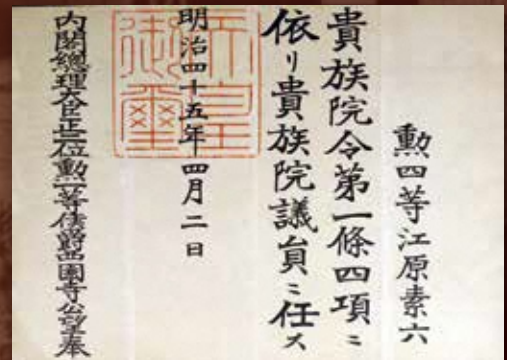 勲四等江原素六
貴族院令第一條四項ニ
依リ貴族院議員ニ任ス
天皇御璽
明治四十五年四月二日
内閣總理大臣正二位勲一等侯爵西園寺公望奉